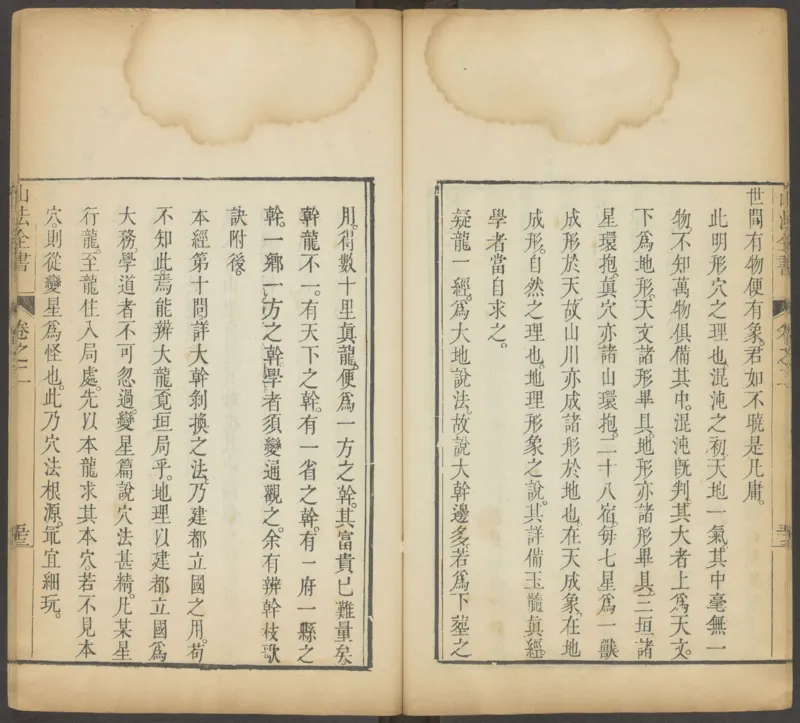 世間有物便有象。君如不曉是凡庸。
此明形穴之理也。混沌之初。天地一氣。其中毫無一
物。不知萬物俱備其中。混沌旣判。其大者上爲天文。
下爲地形。天文諸形畢具。地形亦諸形畢具。三垣諸
星環抱。眞穴亦諸山環抱。二十八宿。每七星爲一獸
成形於天。故山川亦成諸形於地也。在天成象。在地
成形。自然之理也。地理形象之說。其詳備玉髓眞經。
學者當自求之。
疑龍一經。爲大地說法。故說大幹邊多。若爲下塟之
用。得數十里眞龍。便爲一方之幹。其富貴已難量矣。
幹龍不一。有天下之幹。有一省之幹。有一府一縣之
幹。一鄉一方之幹。學者須變通觀之。余有辨幹枝歌
訣附後。
本經第十問。詳大幹剝換之法。乃建都立國之用。苟
不知此。焉能辨大龍。覓垣局乎。地理以建都立國爲
大務。學道者不可忽過。變星篇說穴法甚精。凡某星
行龍。至龍住入局處。先以本龍求其本穴。若不見本
穴。則從變星爲怪也。此乃穴法根源。冣宜細玩。
山法全書
卷之二